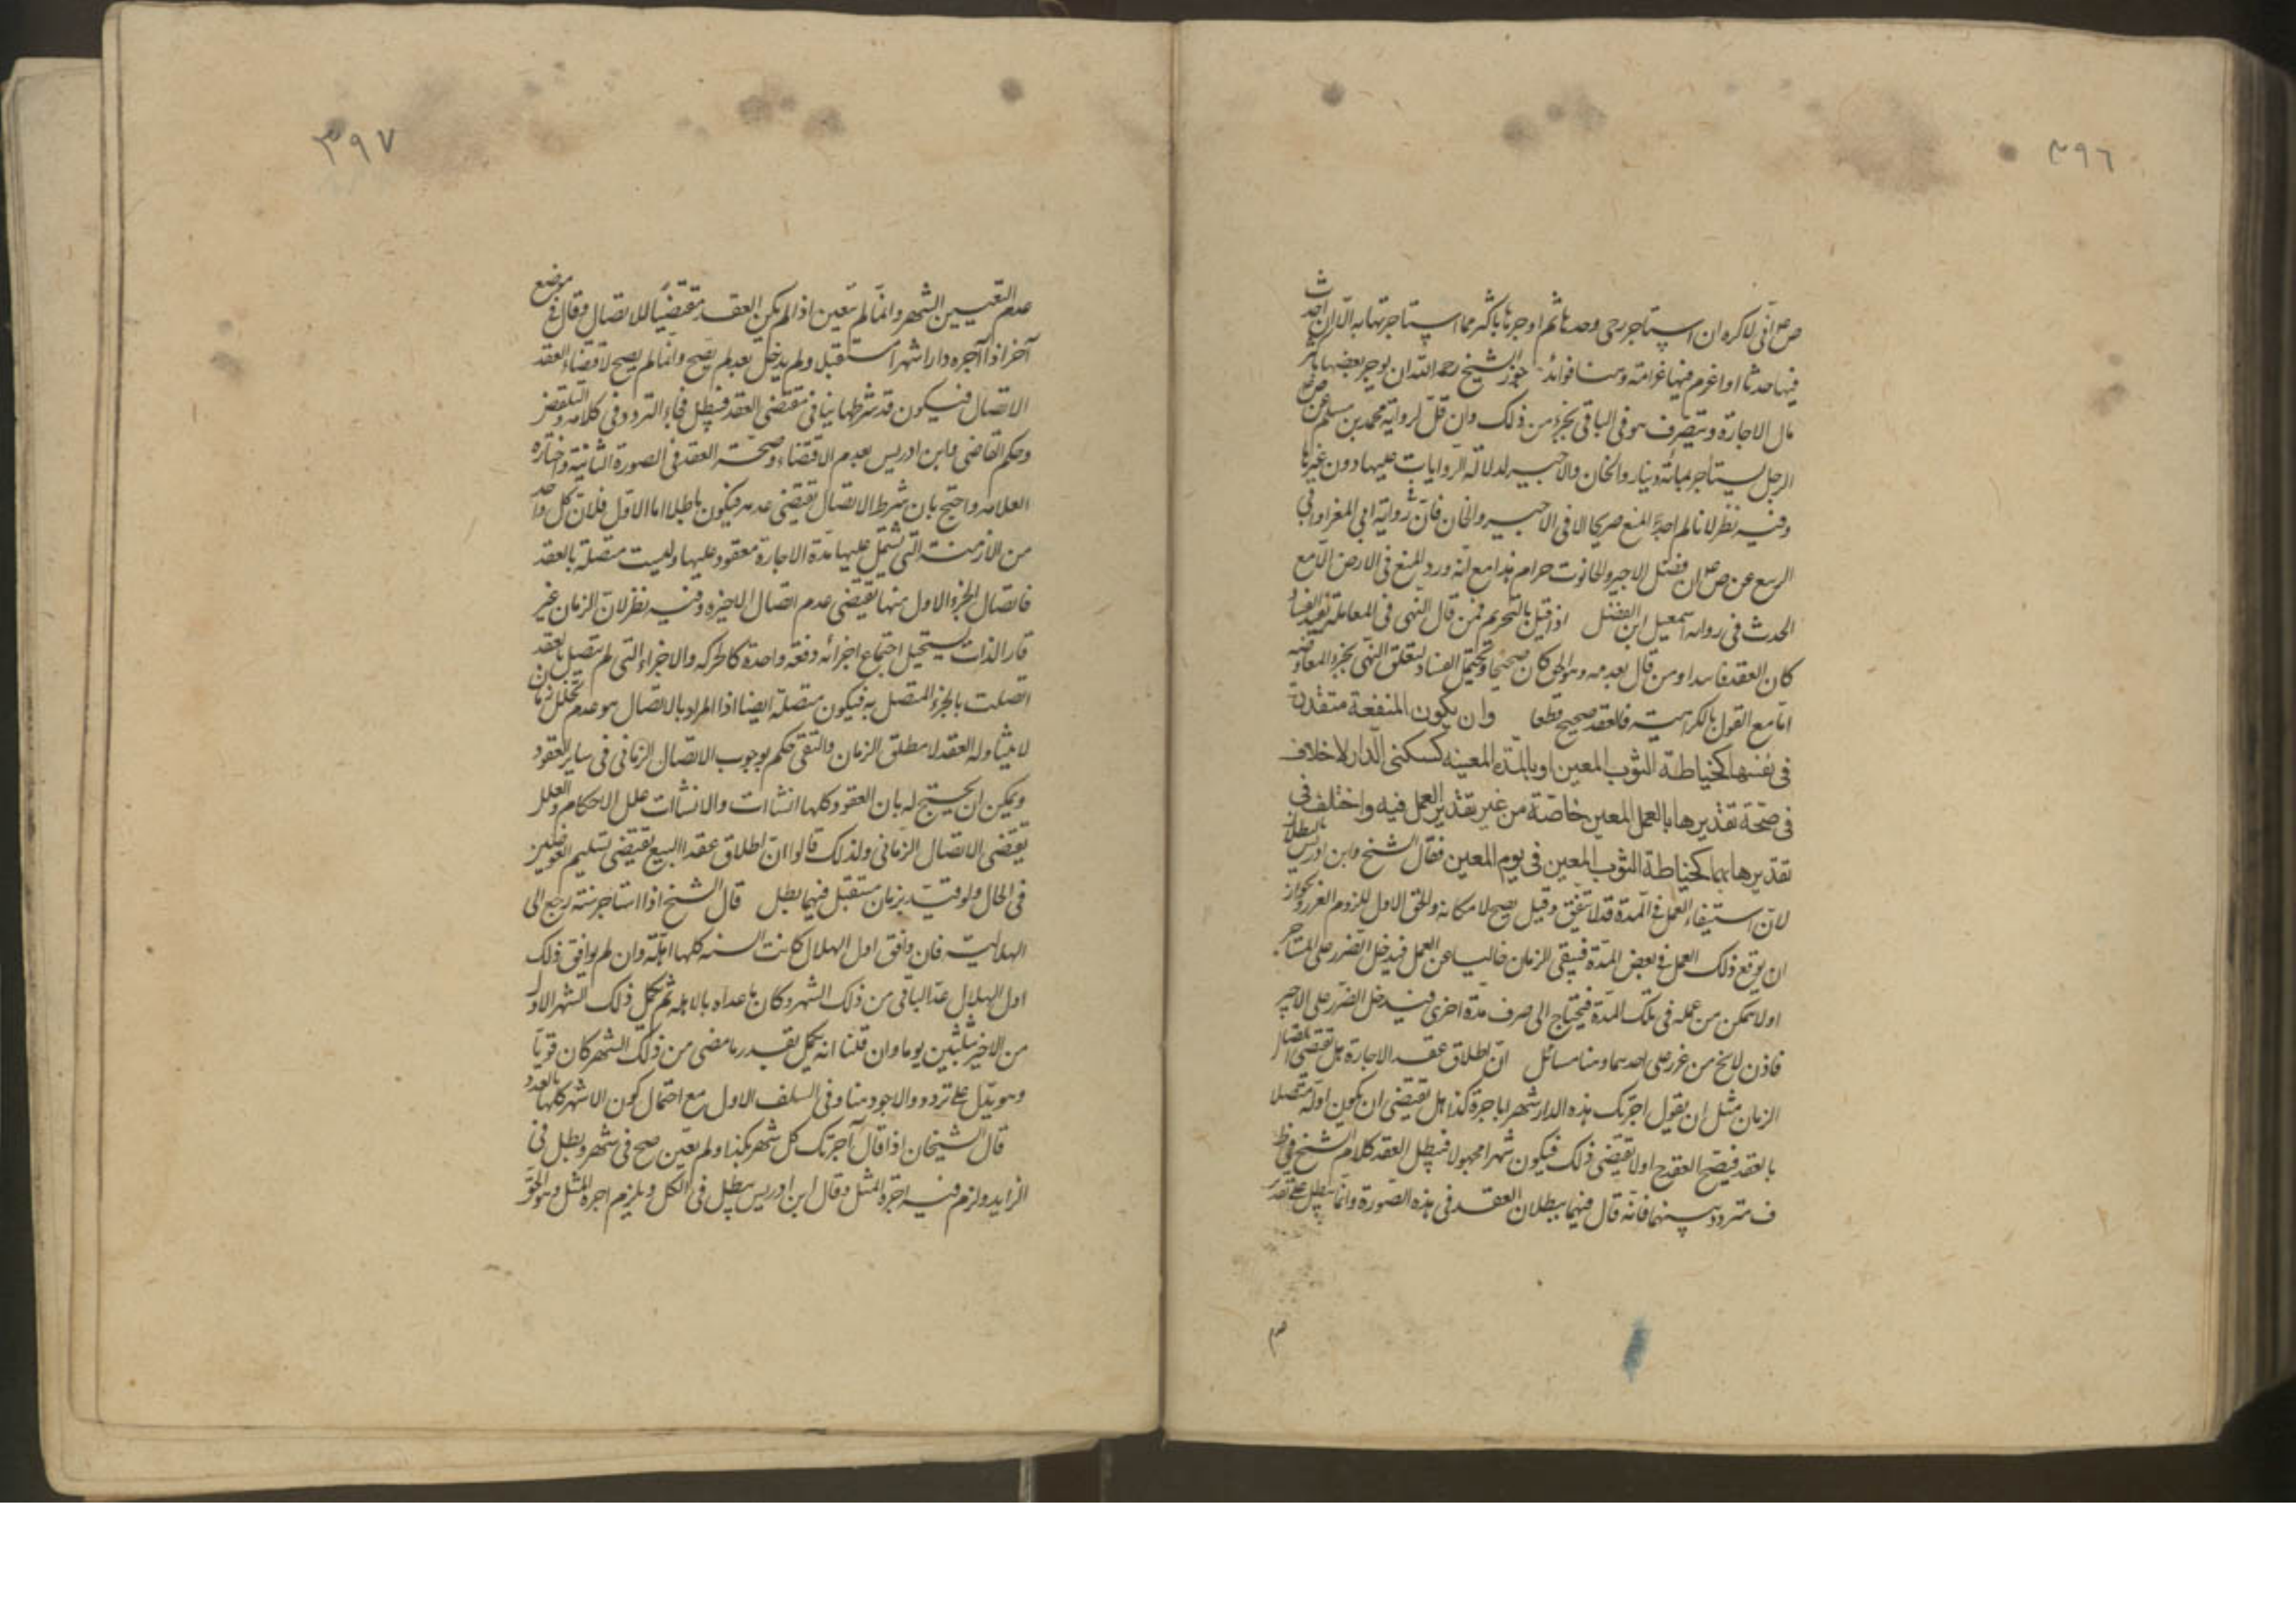 ٣٩٦
ص انى لاكره ان استاجر رحى وحدها ثم اوجرها باكثر مما استاجرتها به الا ان احدث
فيها حدثا او اغرم فيها غرامة وهنا فوائد جوز الشيخ رحمه الله ان يوجر بعضها باكثر
مال الاجارة ويتصرف هو فى الباقى بجزء من ذلك وان قل لرواية محمد بن مسلم عن ص
الرجل يستاجر بمائة دينار والخان والاجير لدلالة الروايات عليها دون غيرها
وفيه نظر لانا لم اجد المنع صريحا الا فى الاجير والخان فان رواية ابى المغرا وابى
الربيع عن ص ان فضل الاجير والحانوت حرام هذا مع انه ورد المنع فى الارض الا مع
الحدث فى رواية اسمعيل ابن الفضل اذا قيل بالتحريم فمن قال النهى فى المعاملة يفيد الفساد
كان العقد فاسدا ومن قال بعدمه وهو الحق كان صحيحا ويحتمل الفساد لتعلق النهى بجزء المعاوضه
اما مع القول بالكراهية فالعقد صحيح قطعا وان يكون المنفعة متقدرة
فى نفسها كخياطة الثوب المعين او بالمدة المعينه كسكنى الدار لا خلاف
فى صحة تقديرها بالعمل المعين خاصة من غير تقدير العمل فيه واختلف فى
تقديرها بهما كخياطة الثوب المعين فى يوم المعين فقال الشيخ وابن ادريس بالبطلان
لان استيفاء العمل فى المدة قد لا يتفق وقيل يصح لامكانه والحق الاول للزوم الغرر لجواز
ان يوقع ذلك العمل فى بعض المدة فيبقى الزمان خاليا عن العمل فيدخل الضرر على المستاجر
او لا يتمكن من عمله فى تلك المدة فيحتاج الى صرف مدة اخرى فيدخل الضرر على الاجير
فاذن لا يخ من غرر على احدهما وهنا مسائل ان اطلاق عقد الاجارة هل تقتضى اتصال
الزمان مثل ان يقول اجرتك هذه الدار شهرا باجرة كذا هل يقتضى ان يكون اوله متصلا
بالعقد فيصح العقد ح او لا يقتضى ذلك فيكون شهرا مجهولا فيبطل العقد كلام الشيخ فى ط
ف متردد بينهما فانه قال فيهما ببطلان العقد فى هذه الصورة وانما يبطل على تقدير
٣٩٧
عدم التعيين الشهر وانما لم تتعين اذا لم يكن العقد مقتضيا للاتصال وقال فى موضع
آخر اذا آجره دارا شهرا مستقبل ولم يدخل بعد لم يصح وانما لم يصح لاقتضاء العقد
الاتصال فيكون قد شرط ما ينافى مقتضى العقد فيبطل فجاء التردد فى كلامه
وحكم القاضى وابن ادريس بعدم الاقتضاء وصحة العقد فى الصورة الثانية واختاره
العلامه واحتج بان شرط الاتصال تقتضى عدمه فيكون باطلا اما الاول فلان كل واحد
من الازمنة التى تشتمل عليها مدة الاجارة معقود عليها وليست متصلة بالعقد
فاتصال الجزء الاول منها تقتضى عدم اتصال الاخيره وفيه نظر لان الزمان غير
قار الذات يستحيل اجتماع اجزائه دفعة واحدة كالحركه والاجزاء التى لم يتصل بالعقد
اتصلت بالجزء المتصل به فيكون متصلة ايضا اذا المراد بالاتصال هو عدم تخلل زمان
لا يتناوله العقد لا مطلق الزمان والتقى حكم بوجوب الاتصال الزمانى فى ساير العقود
ويمكن ان يحتج له بان العقود كلها انشاات والانشاات علل الاحكام والعلل
تقتضى الاتصال الزمانى ولذلك قالوا ان اطلاق عقد البيع تقتضى تسليم العوضين
فى الحال ولو قيد بزمان مستقبل فيهما بطل قال الشيخ اذا استاجر سنة رجع الى
الهلالية فان وافق اول الهلال كانت السنه كلها اهلة وان لم يوافق ذلك
اول الهلال عد الباقى من ذلك الشهر وكان ما عداه بالاهله ثم تكمل ذلك الشهر الاول
من الاخير ثلثين يوما وان قلنا انه يكمل بقدر ما مضى من ذلك الشهر كان قويا
وهو يدل على تردد والاجود هنا وفى السلف الاول مع احتمال كون الاشهر كلها بالعدد
قال الشيخان اذا قال آجرتك كل شهر بكذا ولم يعين صح فى شهر وبطل فى
الزايد ولزم فيه اجرة المثل وقال ابن ادريس يبطل فى الكل ويلزم اجرة المثل وهو الحق